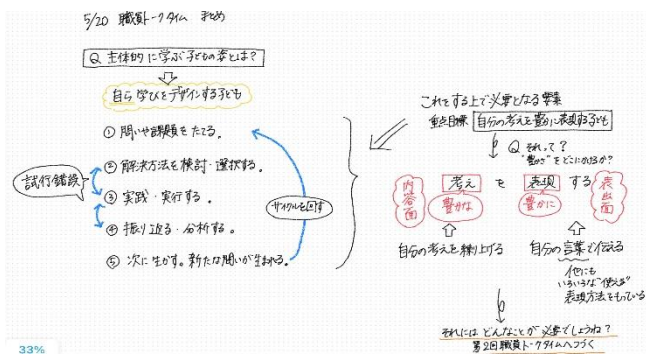 5/20 職員トークタイム まとめ
Q 主体的に学ぶ子どもの姿とは？
自ら学びをデザインする子ども
① 問いや課題をたてる。
② 解決方法を検討・選択する。
③ 実践・実行する。
④ 振り返る・分析する。
⑤ 次に生かす。新たな問いが生まれる。
試行・錯誤
サイクルを回す
これをする上で必要となる要素
重点目標 自分の考えを豊かに表現する子ども
Q それって？
"豊かさ"をどこにかけるか？
内容面
考え を 表現 する
豊かな
豊かに
表出面
自分の考えを練り上げる
自分の言葉で伝える
他にも
いろいろな"使える"
表現方法をもっている
それには どんなことが 必要でしょうね？
第2回職員トークタイムへつづく
33%